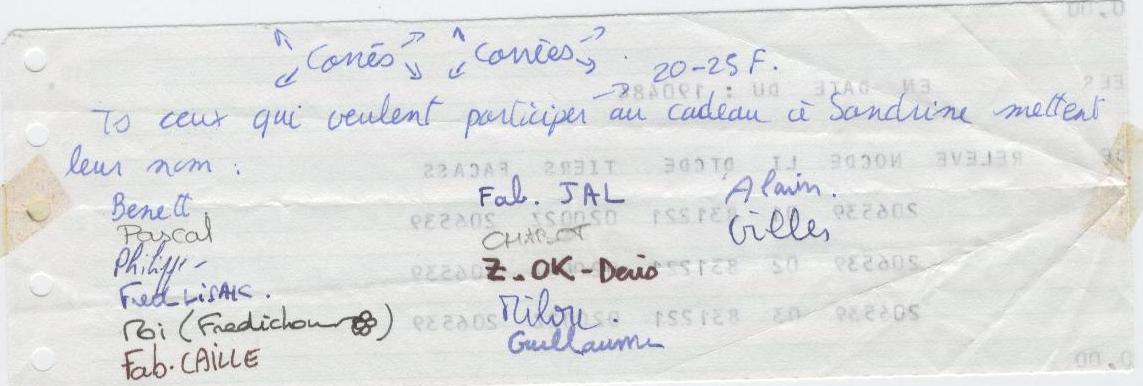 Corrés Corrées.
20-25 F.
Ts ceux qui veulent participer au cadeau à Sandrine mettent
leur nom :
Benett
Pascal
Philippe
Fred LiSAK.
Moi (Fredichou)
Fab. CAILLE
Fab. JAL
CHABOT
Z. OK - Denis
Milou.
Guillaume
Alain.
Gilles
EN DATE DU : 190488
RELEVE NOCDE LI DTCDE TIERS FACASS
206539 831221 020027 206539
206539 02 831221 206539
206539 03 831221 206539
0.00
00.